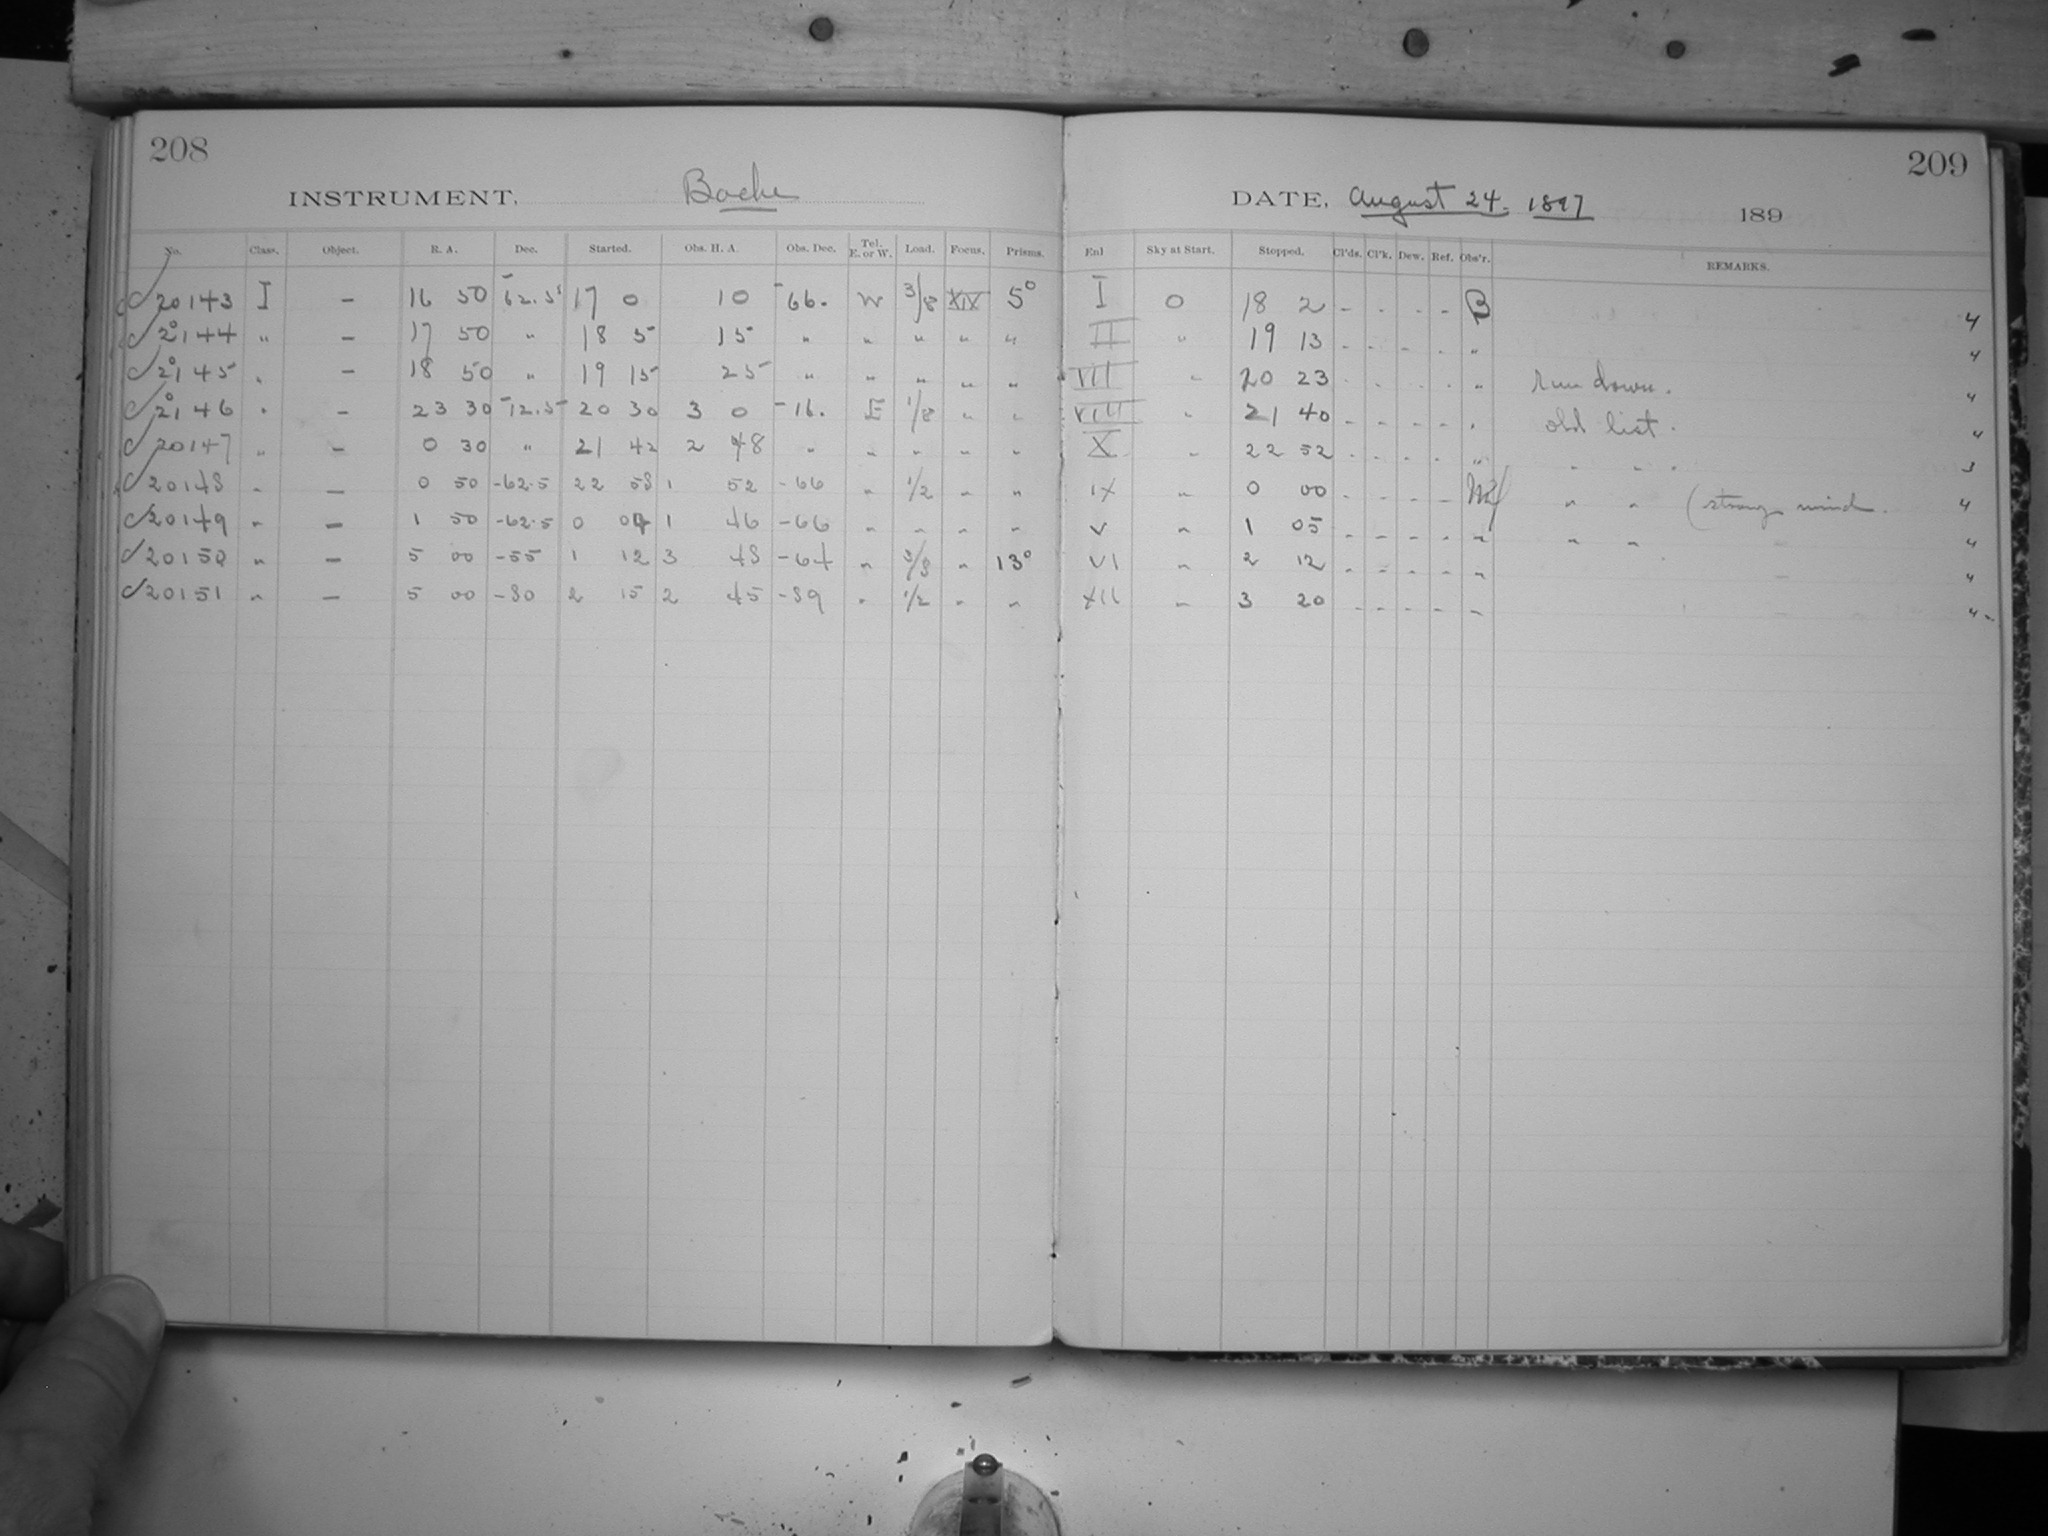 208
INSTRUMENT. Bache
No. Class. Object. R. A. Dec. Started. Obs. H. A. Obs. Dec. Tel. E. or W. Load. Focus. Prisms.
20143 I - 16 50 -62.5 17 0 10 -66. W 3/8 XIX 5°
20144 " - 17 50 " 18 5 15 " " " " "
20145 " - 18 50 " 19 15 25 " " " " "
20146 " - 23 30 -12.5 20 30 3 0 -16. E 1/8 " "
20147 " - 0 30 " 21 42 2 48 " " " " "
20148 " - 0 50 -62.5 22 58 1 52 -66 " 1/2 " "
20149 " - 1 50 -62.5 0 04 1 46 -66 " " " "
20150 " - 5 00 -55 1 12 3 48 -64 " 3/8 " 13°
20151 " - 5 00 -80 2 15 2 45 -89 " 1/2 " "
209
DATE. August 24. 1897 189
Enl Sky at Start. Stopped. Cl'ds. Cl'k. Dew. Ref. Obs'r. REMARKS.
I 0 18 2 - - - - B 4
II " 19 13 - - - - " 4
VII " 20 23 - - - - " run down. 4
VIII " 21 40 - - - - " old list. 4
X " 22 52 - - - - " " " 3
IX " 0 00 - - - - " " (strong wind. 4
V " 1 05 - - - - " " " 4
VI " 2 12 - - - - " 4
XII " 3 20 - - - - " 4